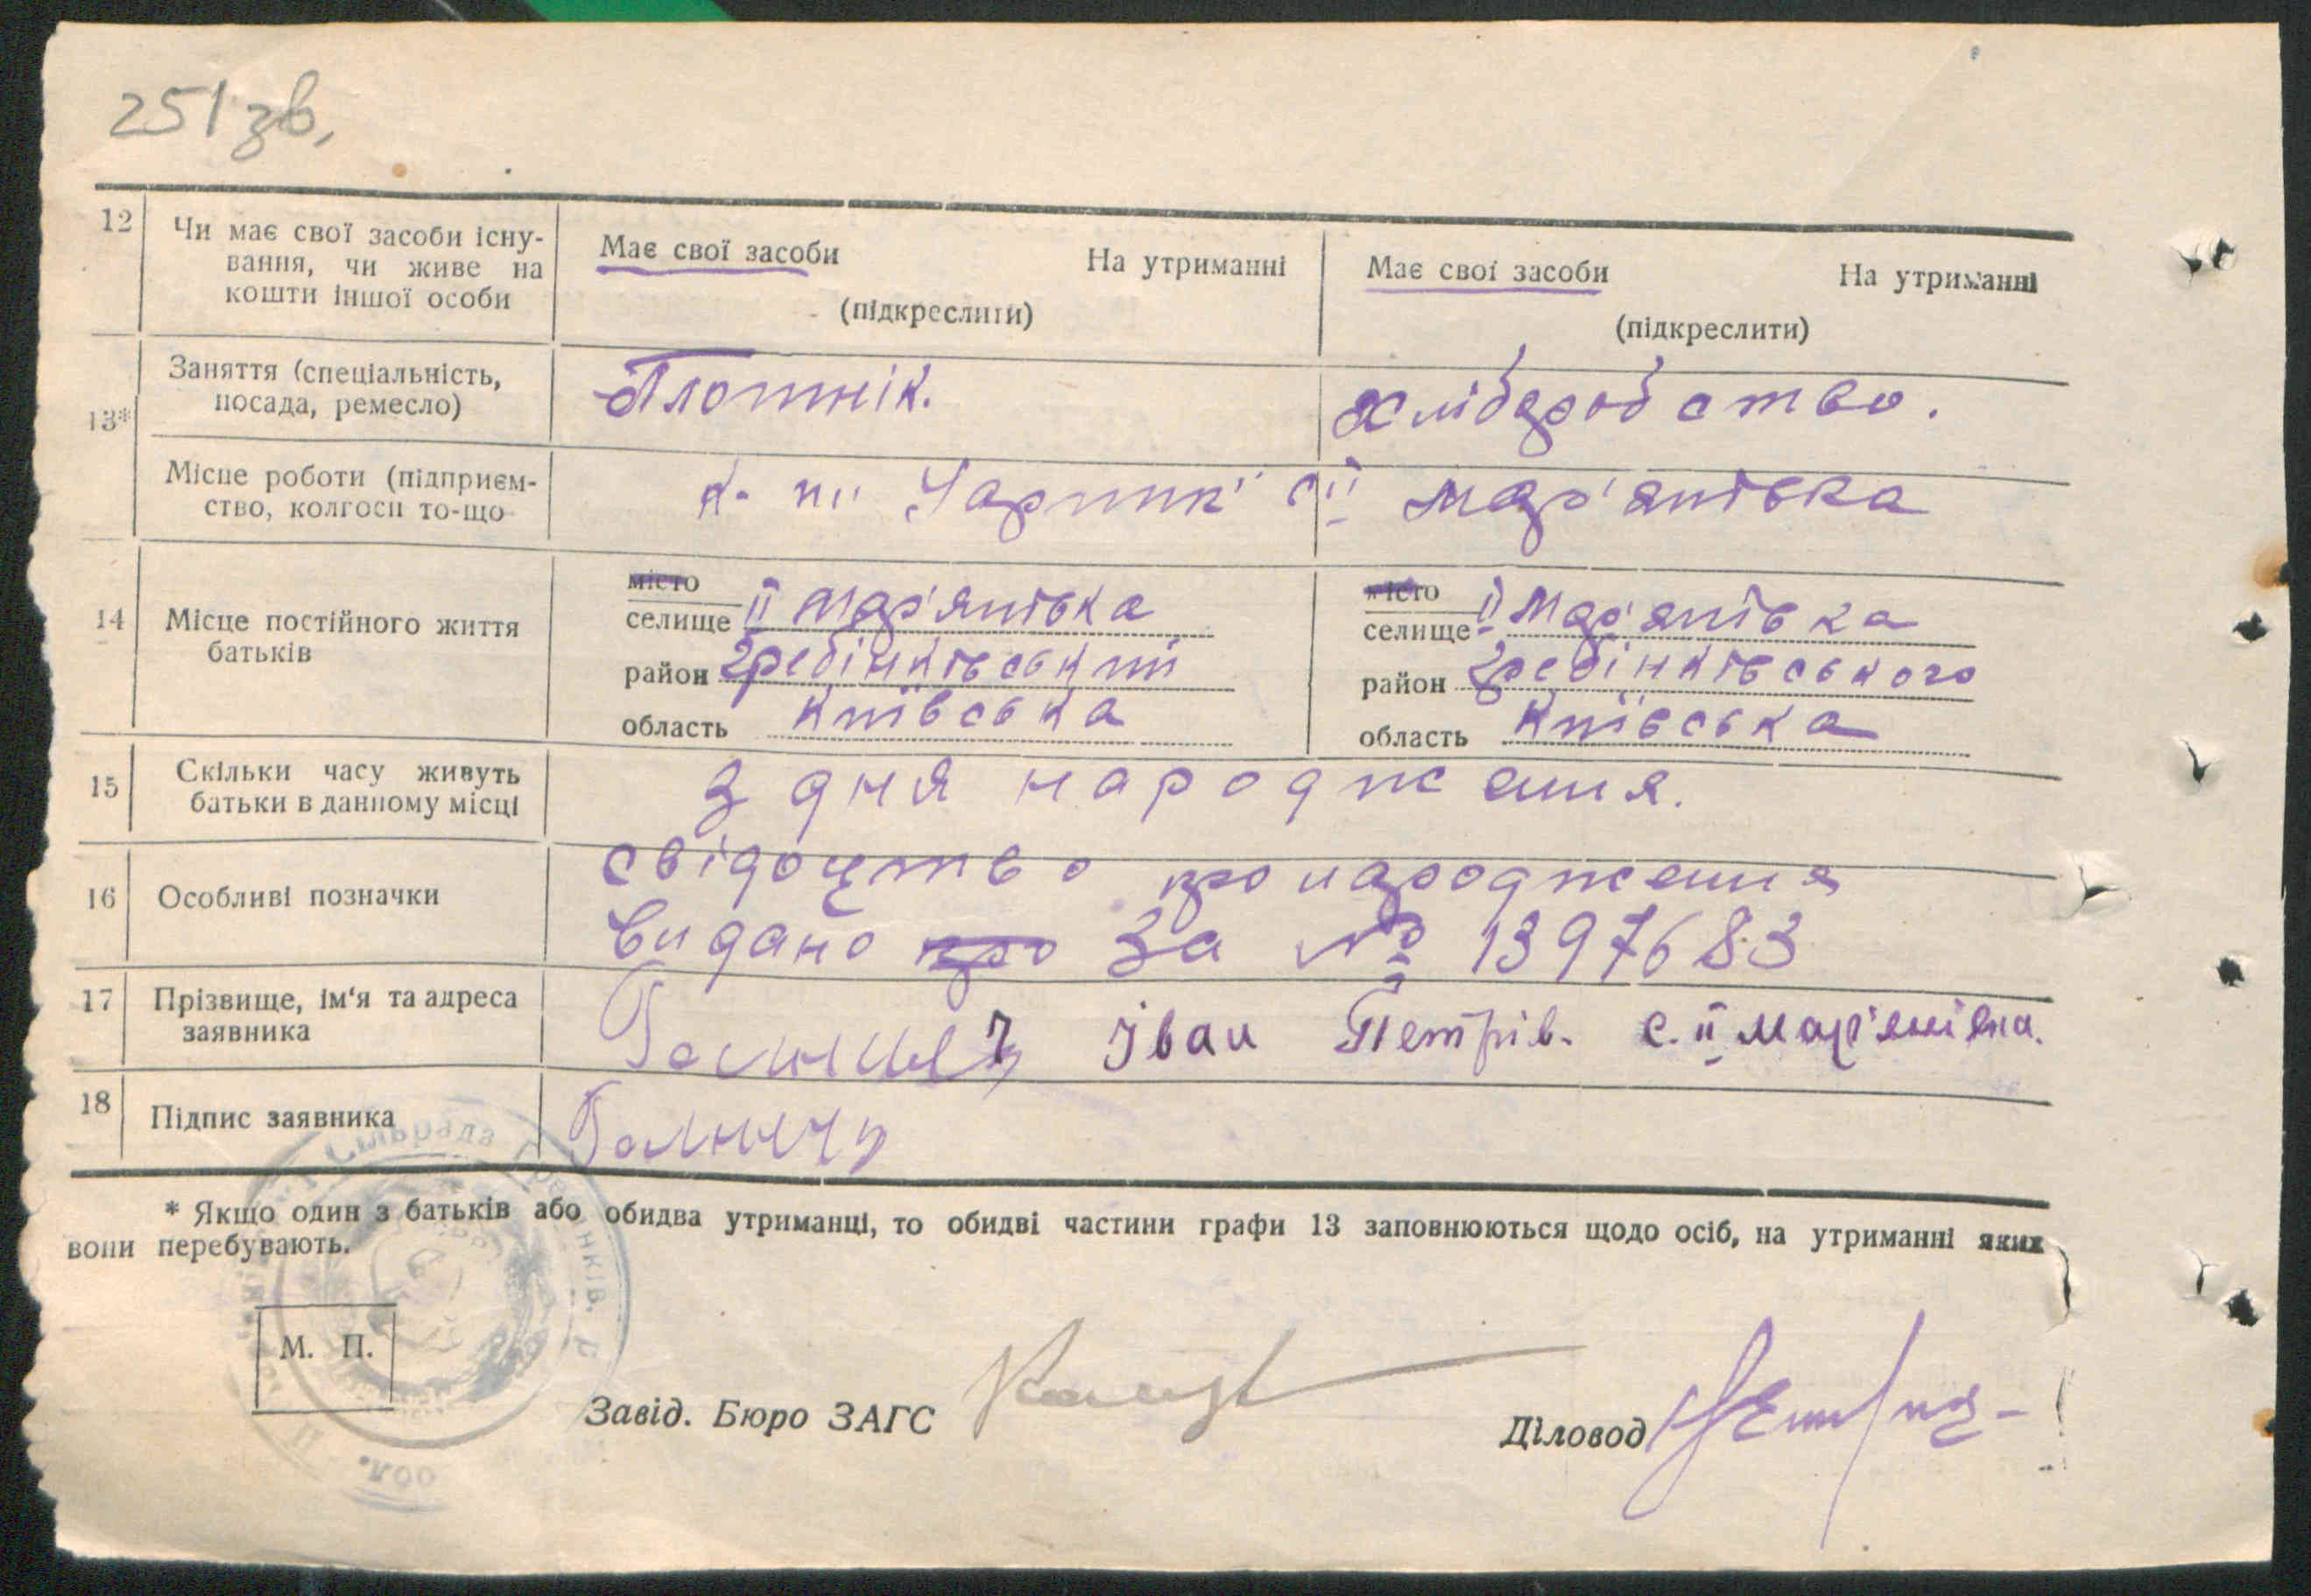 251 зв.
12 Чи має свої засоби існу-
вання, чи живе на
кошти іншої особи
Має свої засоби На утриманні
(підкреслити)
Має свої засоби На утриманні
(підкреслити)
13* Заняття (спеціальність,
посада, ремесло)
Плотнік.
хліборобство.
Місце роботи (підприєм-
ство, колгосп то-що
II Мар'янівка
14 Місце постійного життя
батьків
місто
селище II Мар'янівка
район Гребінківський
область Київська
місто
селище II Мар'янівка
район Гребінківського
область Київська
15 Скільки часу живуть
батьки в данному місці
З дня народження.
16 Особливі позначки
свідоцтво про народження
видано про За № 1397683
17 Прізвище, ім'я та адреса
заявника
Іван Петрів. с. II Мар'янівка.
18 Підпис заявника
* Якщо один з батьків або обидва утриманці, то обидві частини графи 13 заповнюються щодо осіб, на утриманні яких
вони перебувають.
М. П.
Завід. Бюро ЗАГС
Діловод
Сільрада
обл.